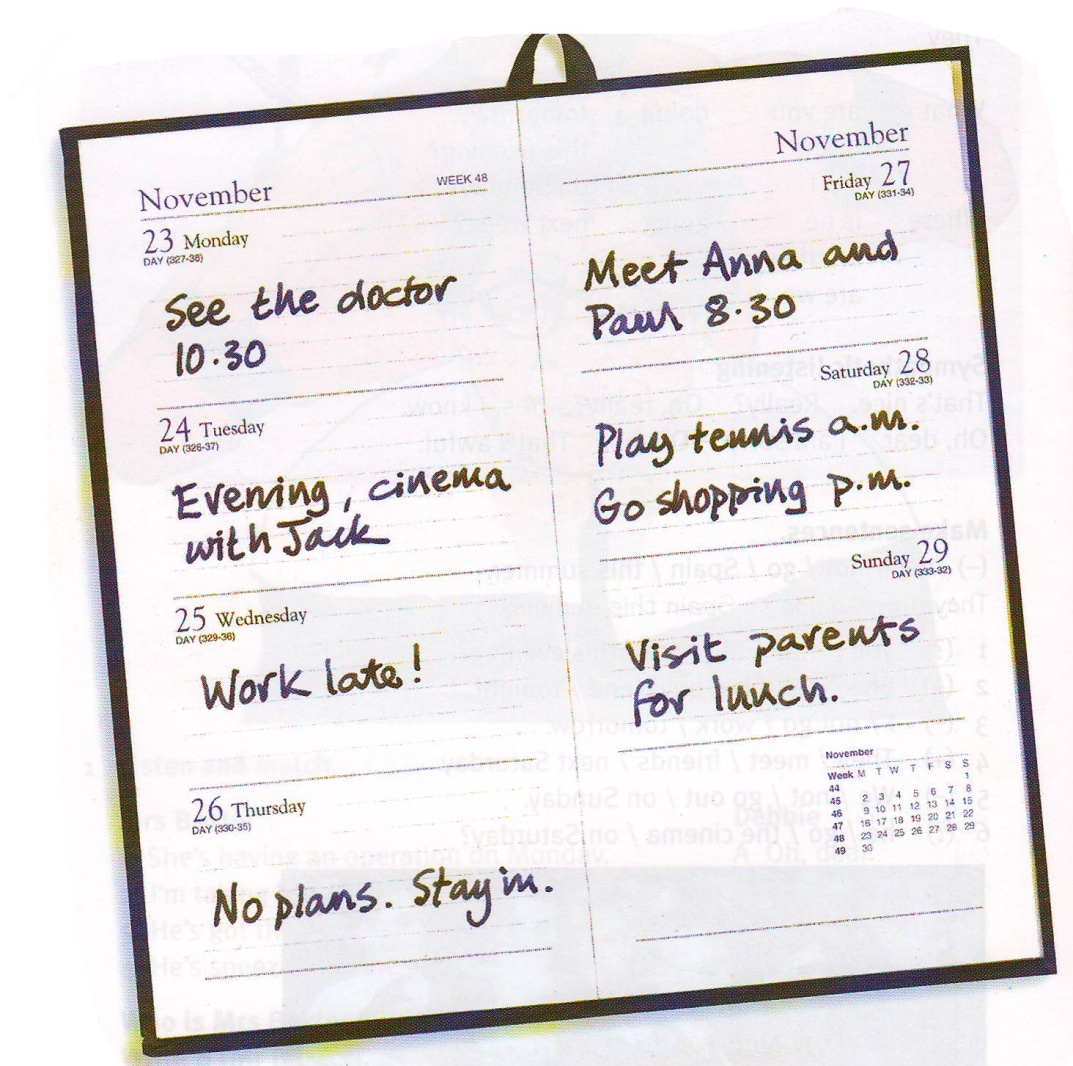 November WEEK 48
23 Monday
DAY (327-38)
See the doctor
10.30
24 Tuesday
DAY (328-37)
Evening, cinema
with Jack
25 Wednesday
DAY (329-36)
Work late!
26 Thursday
DAY (330-35)
No plans. Stay in.
November
Friday 27
DAY (331-34)
Meet Anna and
Paul 8.30
Saturday 28
DAY (332-33)
Play tennis a.m.
Go shopping p.m.
Sunday 29
DAY (333-32)
Visit parents
for lunch.
November
Week M T W T F S S
44 1
45 2 3 4 5 6 7 8
46 9 10 11 12 13 14 15
47 16 17 18 19 20 21 22
48 23 24 25 26 27 28 29
49 30